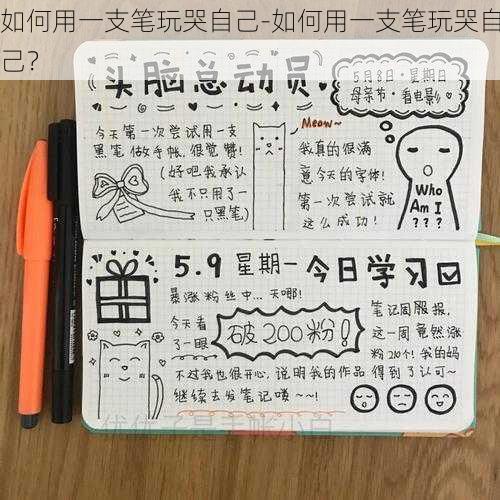 如何用一支笔玩哭自己-如何用一支笔玩哭自
己？
头脑总动员
5月8日·星期日
母亲节·看电影♡
今天第一次尝试用一支
黑笔做手帐，很觉赞！
(好吧我承认
我不只用了一
只黑笔)
Meow~
我真的很满
意今天的字体！
第一次尝试就
这么成功！
Who
Am I
???
5.9 星期一今日学习☑
暴涨粉丝中...天哪！
今天看
了一眼
破200粉！
笔记周服报，
这一周竟然涨
粉210个！我的妈
不过我也很开心，说明我的作品得到了认可~
继续去发笔记喽~~！
优优子是手帐小白